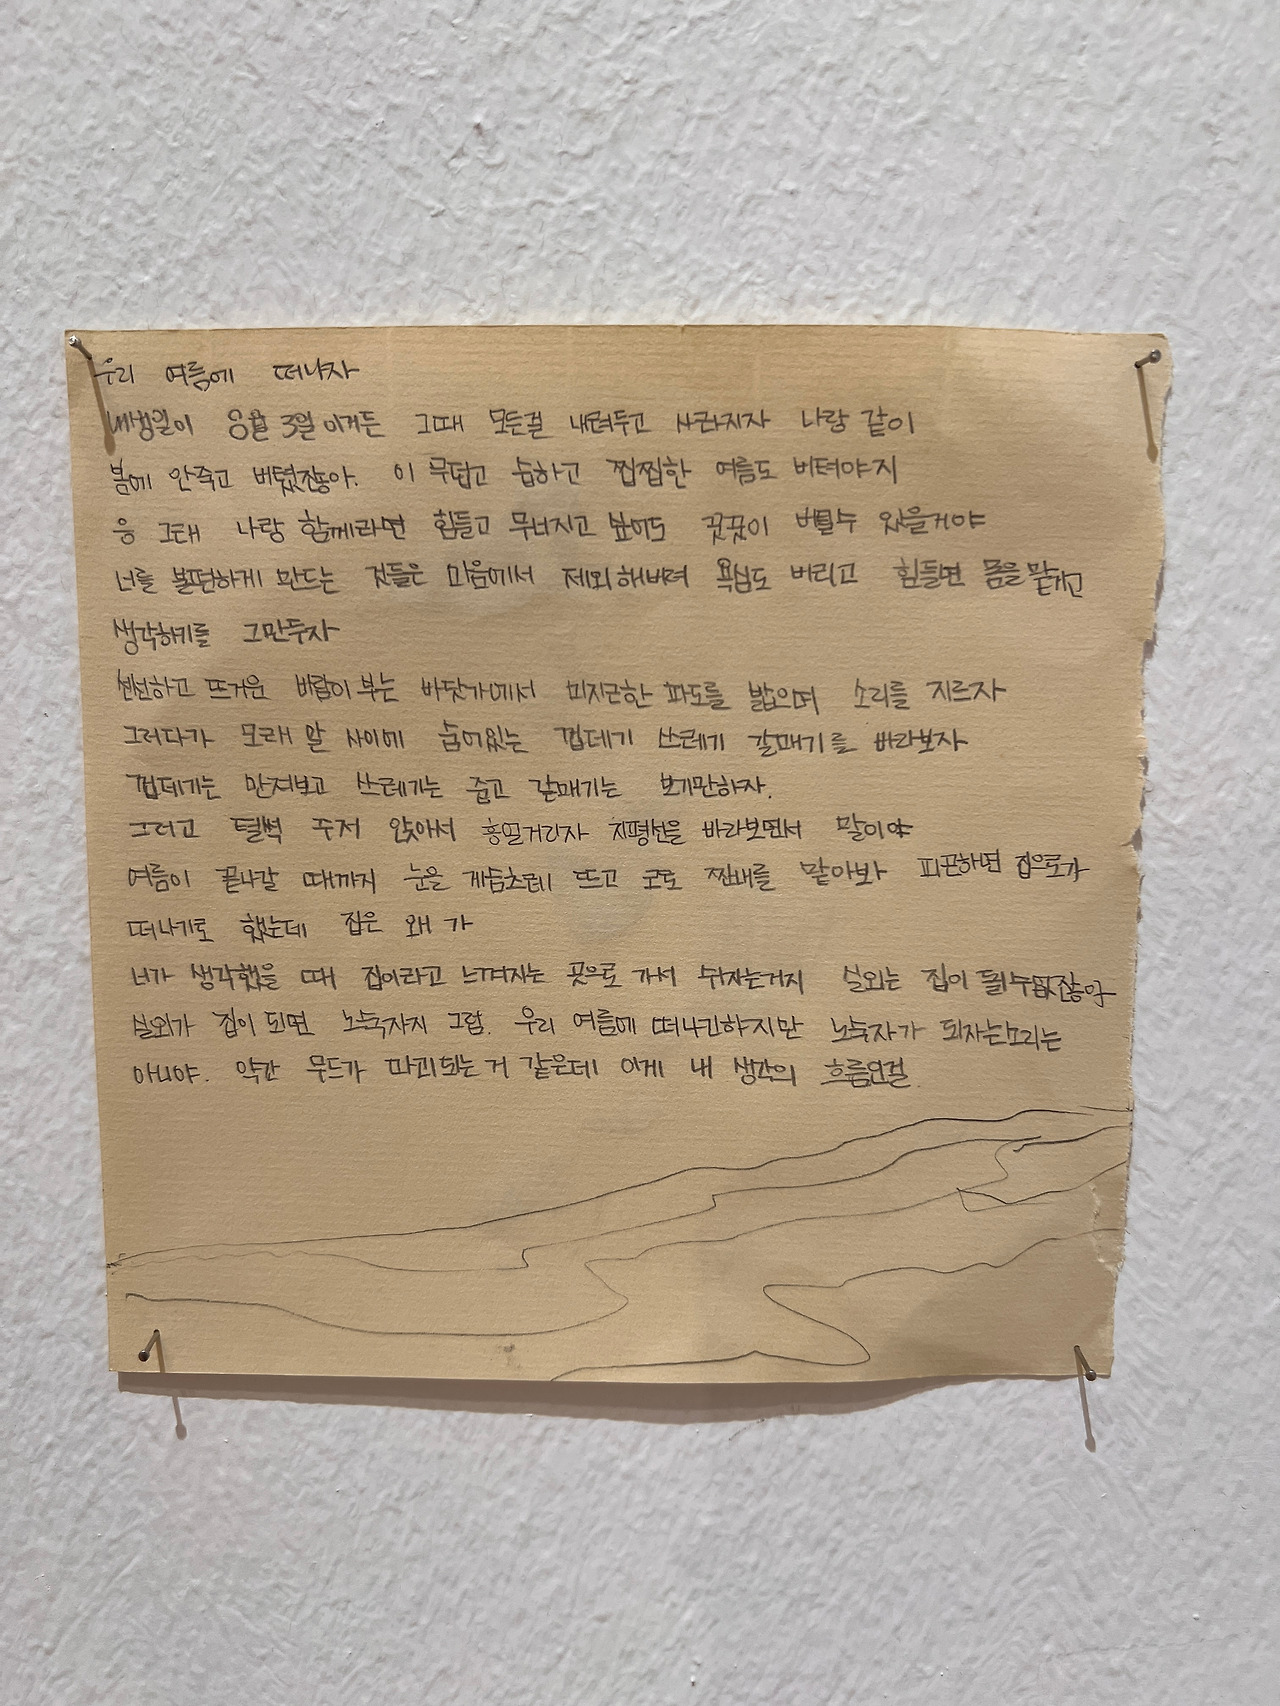 우리 여름에 떠나자
내생일이 8월 3일 이거든 그때 모든걸 내려두고 사라지자 나랑 같이
봄에 안죽고 버텼잖아. 이 무덥고 습하고 찝찝한 여름도 버텨야지
응 그래 나랑 함께라면 힘들고 무너지고 싶어도 꿋꿋이 버틸수 있을거야
너를 불편하게 만드는 것들은 마음에서 제외해버려 욕심도 버리고 힘들면 몸을 맡기고
생각하기를 그만두자
선선하고 뜨거운 바람이 부는 바닷가에서 미지근한 파도를 밟으며 소리를 지르자
그러다가 모래 알 사이에 숨어있는 껍데기 쓰레기 갈매기를 바라보자
껍데기는 만져보고 쓰레기는 줍고 갈매기는 보기만하자.
그러고 털썩 주저 앉아서 흥얼거리자 지평선을 바라보면서 말이야
여름이 끝나갈 때까지 눈을 게슴츠레 뜨고 코로 짠내를 맡아봐 피곤하면 집으로가
떠나기로 했는데 집은 왜 가
너가 생각했을 때 집이라고 느껴지는 곳으로 가서 쉬자는거지 실외는 집이 될수없잖아
실외가 집이 되면 노숙자지 그럼. 우리 여름에 떠나긴하지만 노숙자가 되자는소리는
아니야. 약간 무드가 파괴되는 거 같은데 이게 내 생각의 흐름인걸